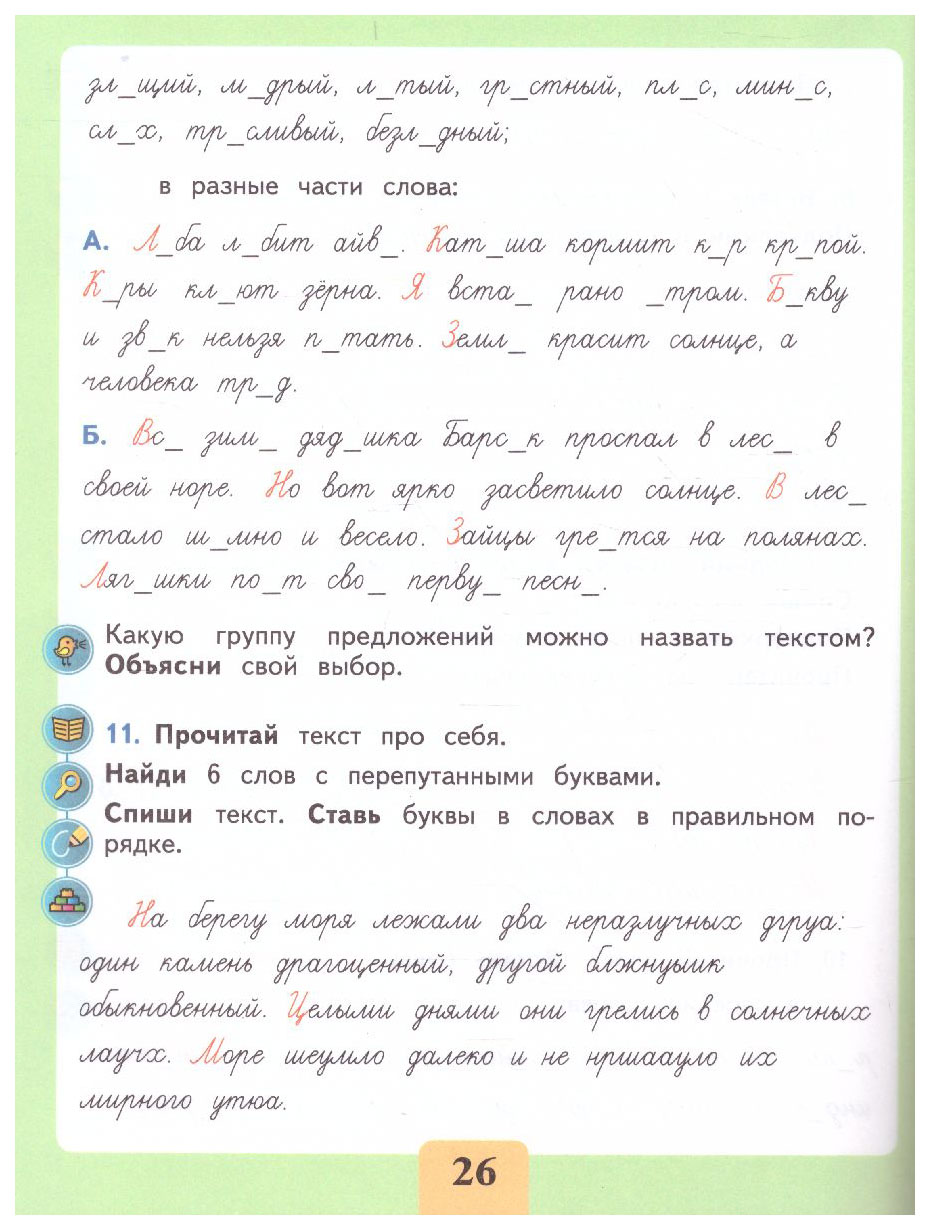 зл_щий, м_дрый, л_тый, гр_стный, пл_с, мин_с,
сл_х, тр_сливый, безл_дный;
в разные части слова:
А. Л_ба л_бит айв_. Кат_ша кормит к_р кр_пой.
К_ры кл_ют зёрна. Я вста_ рано _тром. Б_кву
и зв_к нельзя п_тать. Земл_ красит солнце, а
человека тр_д.
Б. Вс_ зим_ дяд_шка Барс_к проспал в лес_ в
своей норе. Но вот ярко засветило солнце. В лес_
стало ш_мно и весело. Зайцы гре_тся на полянах.
Ляг_шки по_т сво_ перву_ песн_.
Какую группу предложений можно назвать текстом?
Объясни свой выбор.
11. Прочитай текст про себя.
Найди 6 слов с перепутанными буквами.
Спиши текст. Ставь буквы в словах в правильном по-
рядке.
На берегу моря лежали два неразлучных дгруа:
один камень драгоценный, другой блжнуыик
обыкновенный. Целыми днями они грелись в солнечных
лаучх. Море шеумло далеко и не нршаауло их
мирного утюа.
26